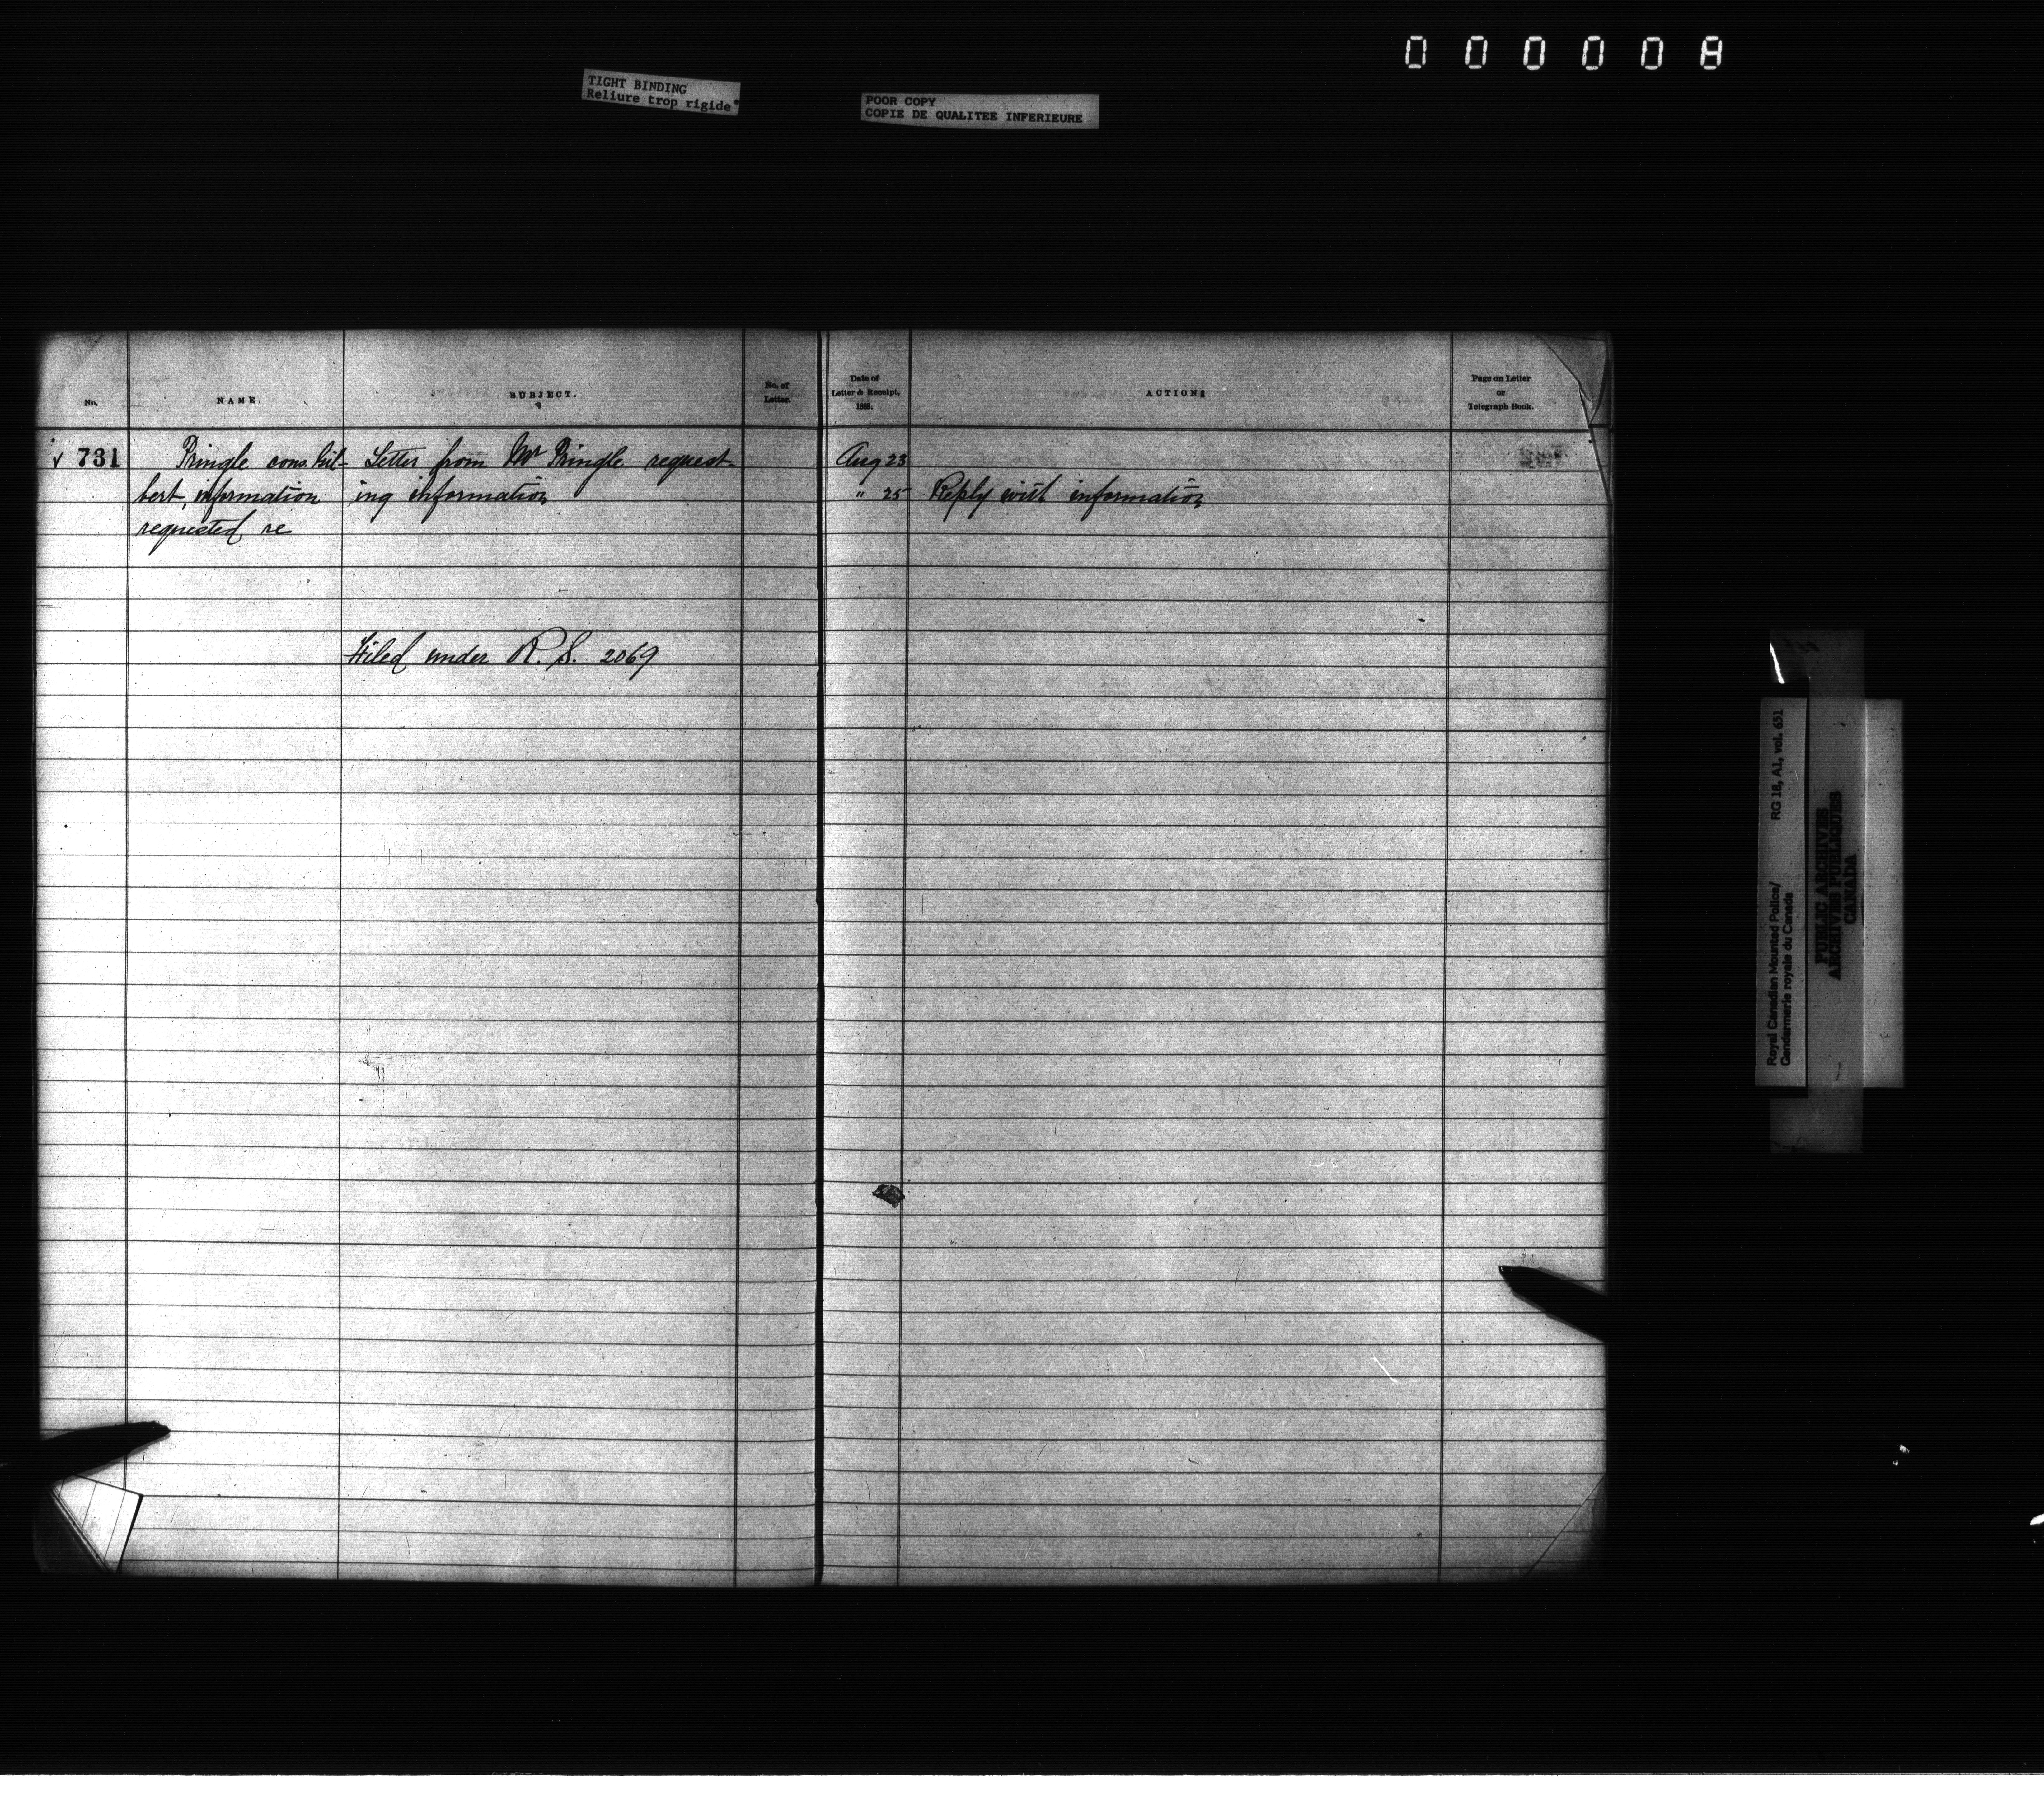 000008
TIGHT BINDING
Reliure trop rigide
POOR COPY
COPIE DE QUALITEE INFERIEURE
No.
NAME.
SUBJECT.
No. of
Letter.
Date of
Letter & Receipt,
188
ACTION
Page on Letter
or
Telegraph Book.
731
Pringle cons. Gil-
bert, information
requested re
Letter from Mr Pringle request-
ing information
Aug 23
" 25
Reply with information
Filed under R. S. 2069
Royal Canadian Mounted Police/
Gendarmerie royale du Canada
RG 18, A1, vol. 651
PUBLIC ARCHIVES
ARCHIVES PUBLIQUES
CANADA